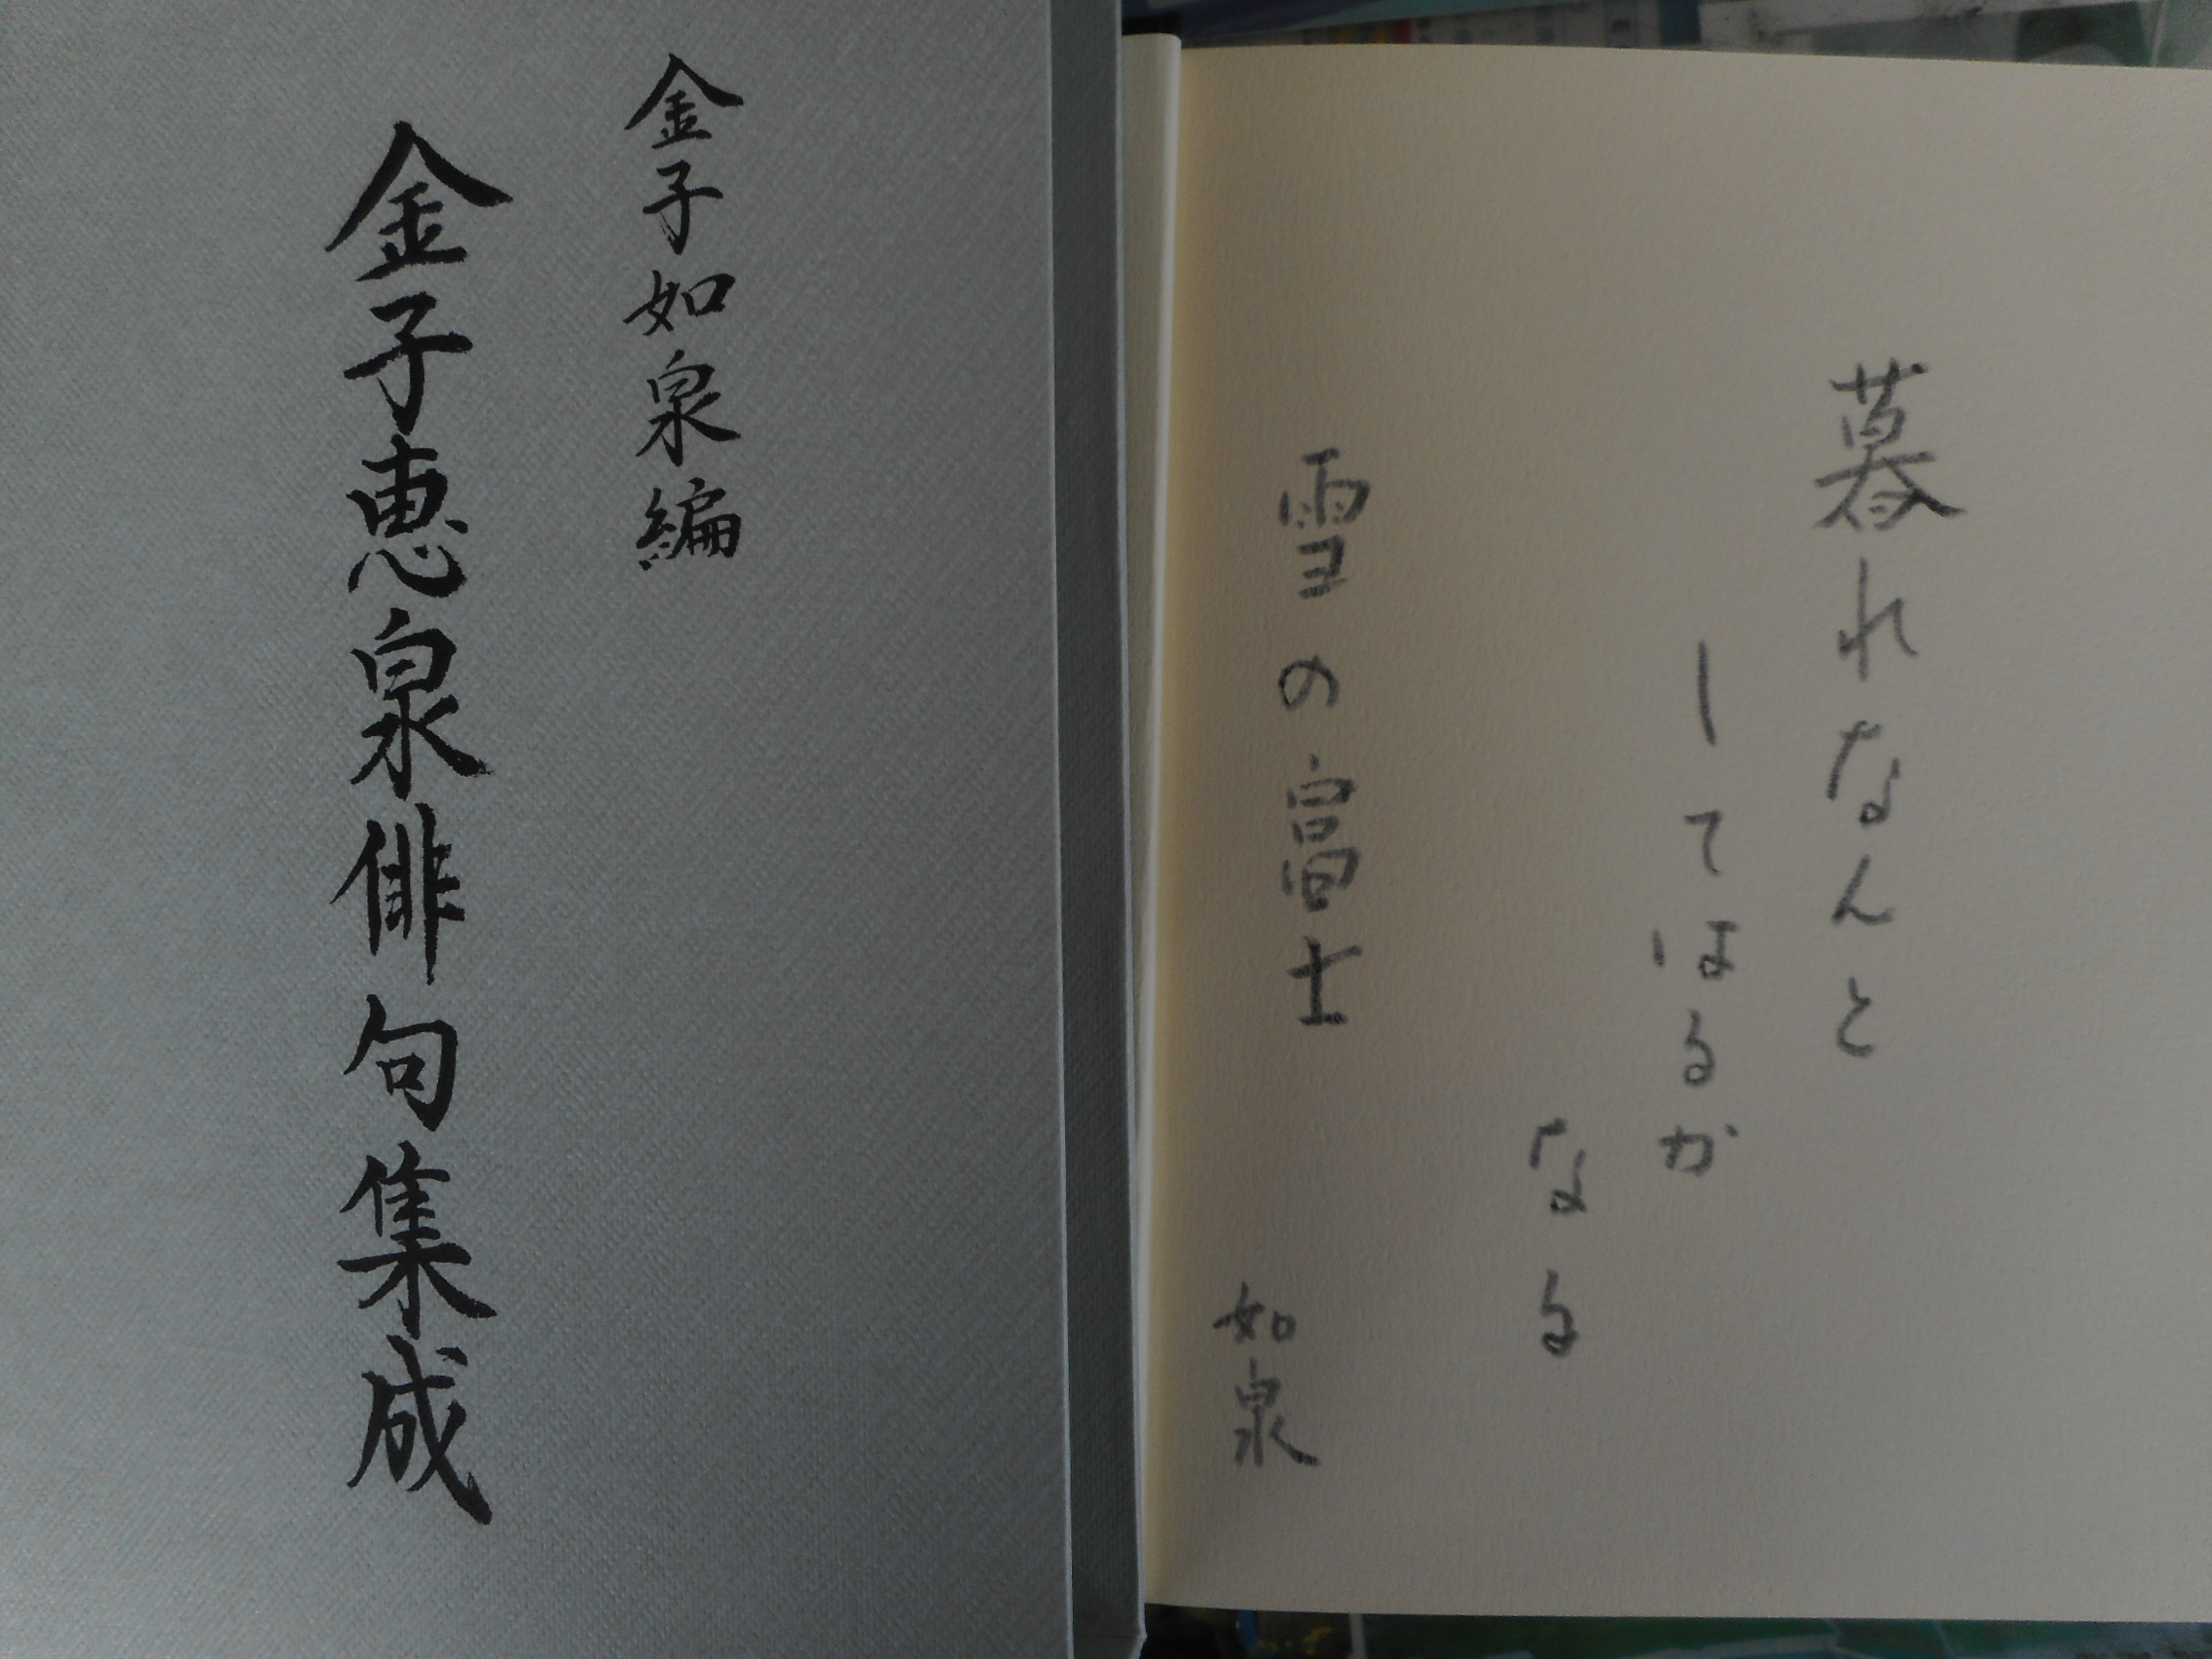 金子如泉編
金子恵泉俳句集成
暮れなんと
してはるか
なる
雪の富士
如泉